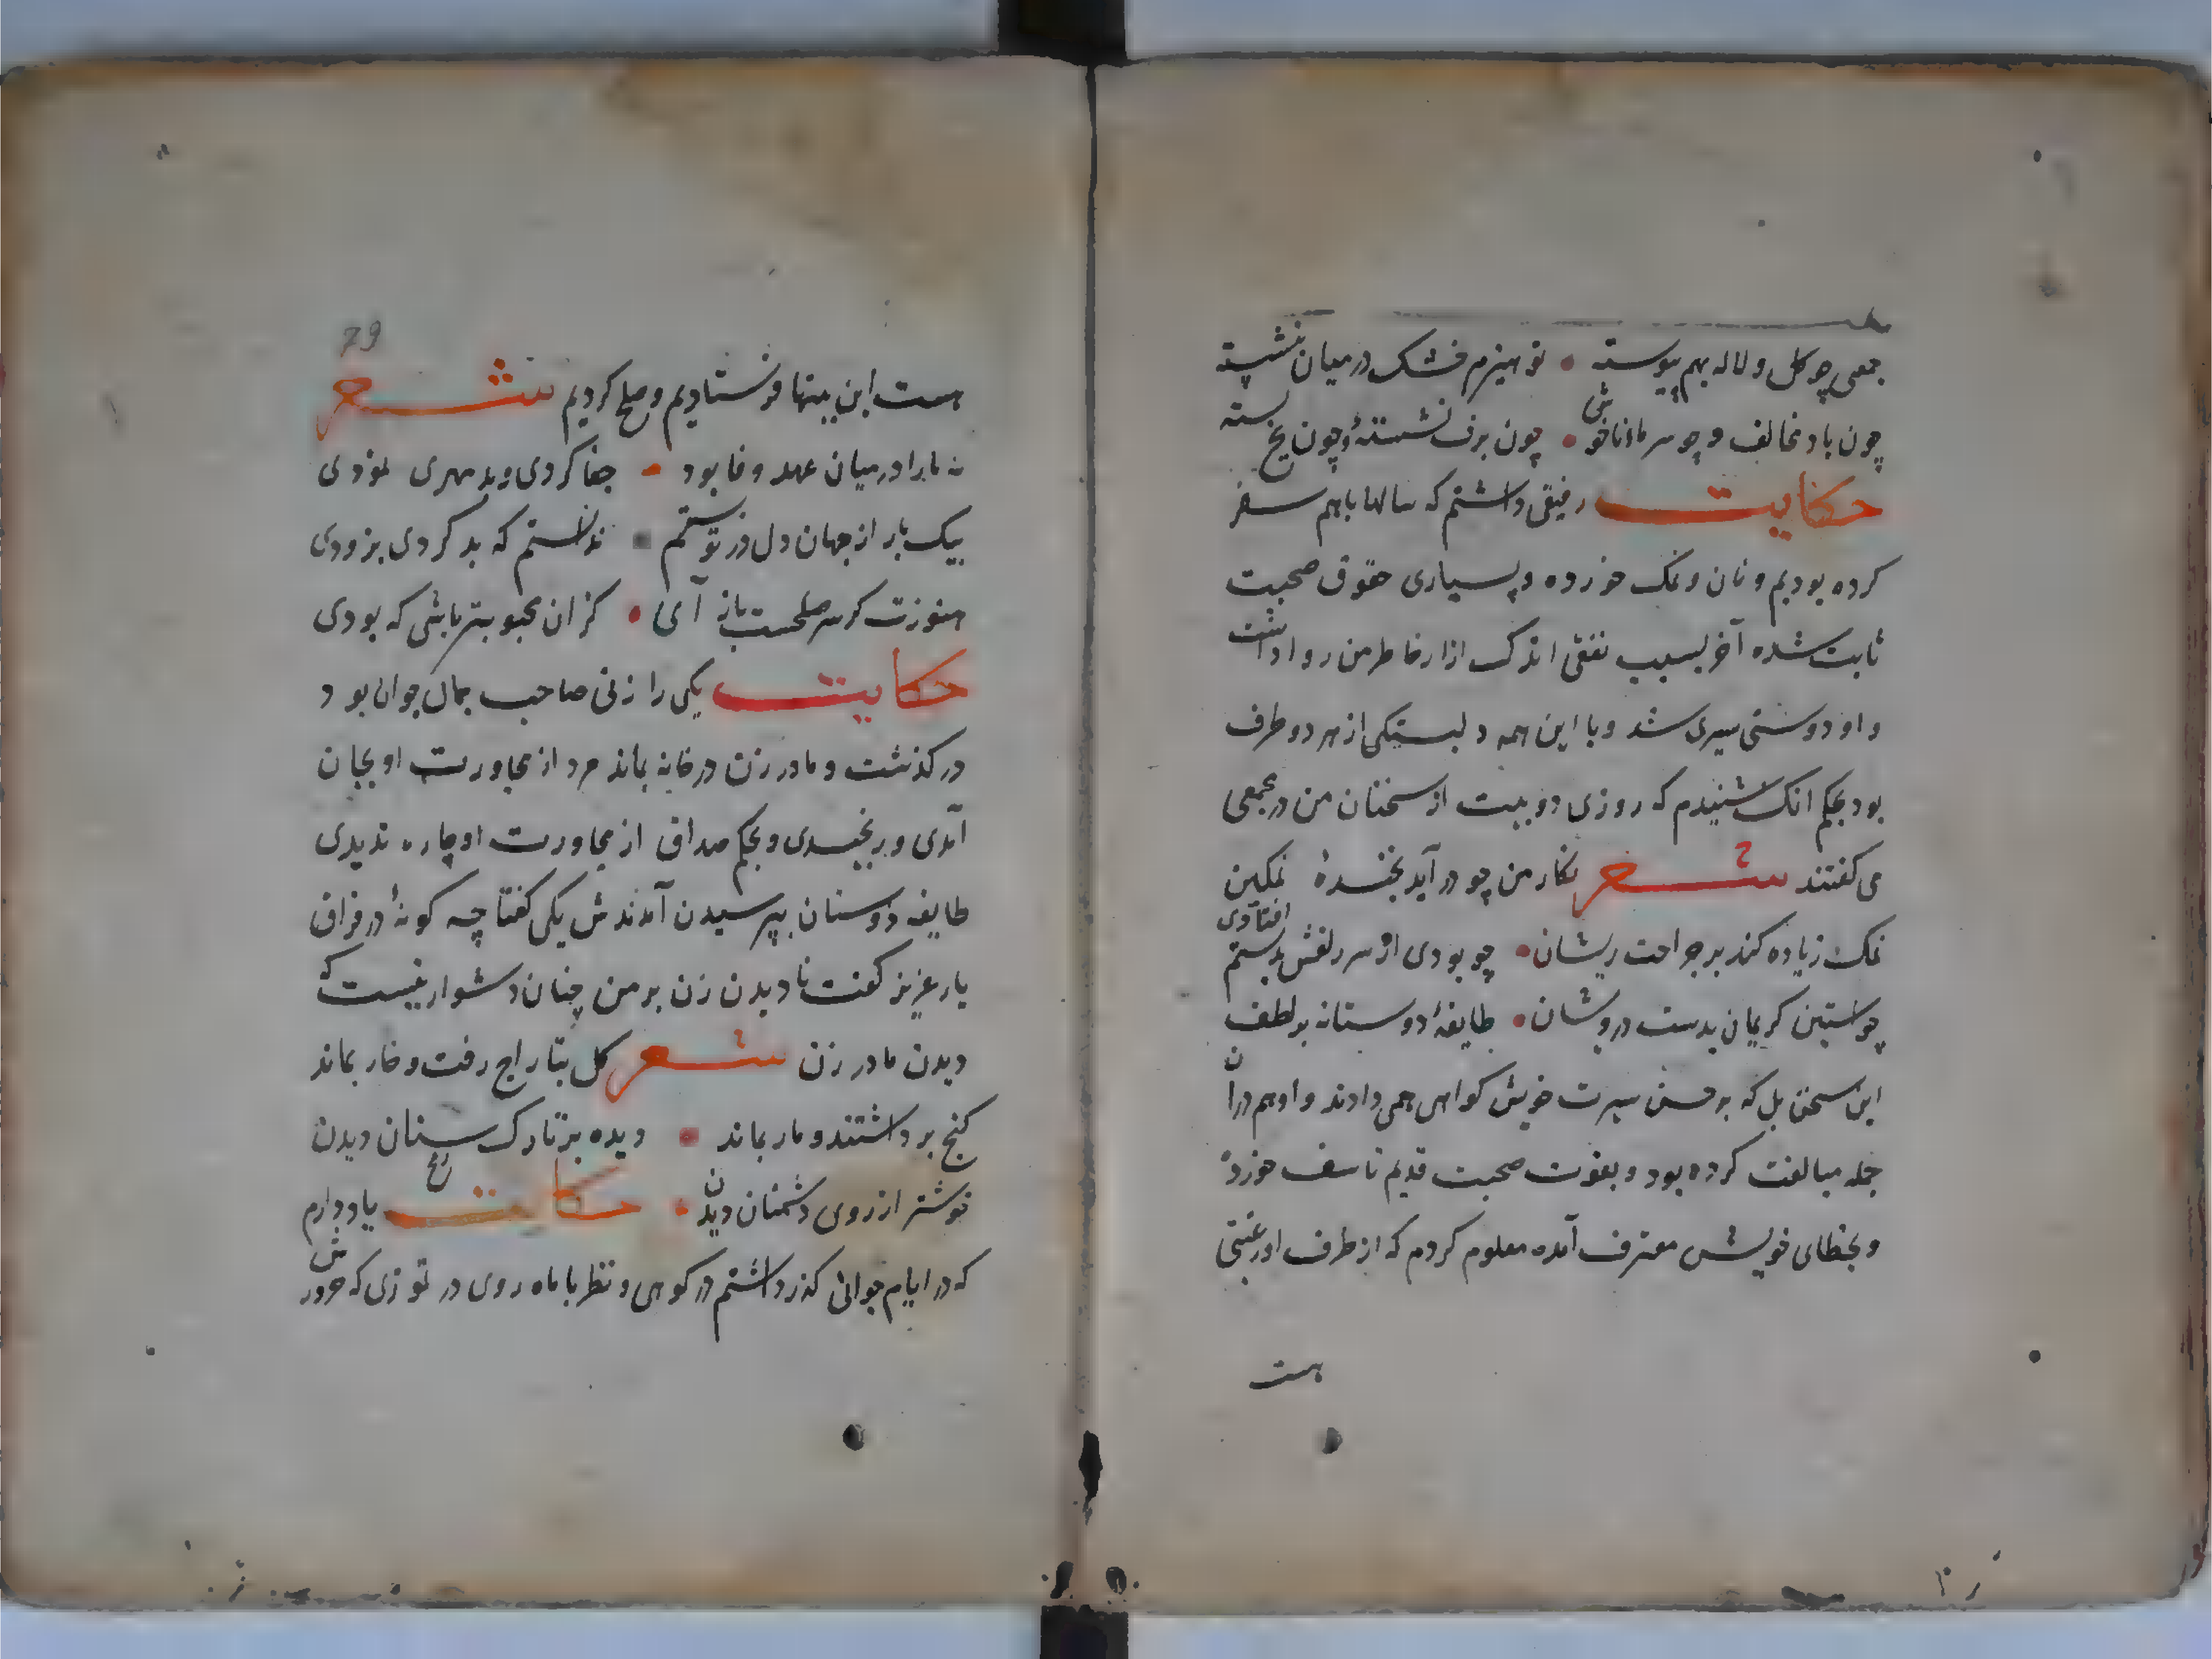 جمعی چو کل و لاله بهم پیوسته • تو هیزم خشک در میان ننشسته
چون باد مخالف و چو سرما ناخوش • چون برف نشستهٔ و چون یخ بسته
حکایت رفیقی داشتم که سالها باهم سفر
کرده بودیم و نان و نمک خورده و بسیاری حقوق صحبت
ثابت شده آخر بسبب نفقی اندک ازار خاطر من روا داشت
و او دوستی سپری شد و با این همه دلبستکی از هر دو طرف
بود بحکم انک شنیدم که روزی دو بیت از سخنان من در مجمعی
می کفتند شعر نکار من چو در آید بخندهٔ نمکین
نمک زیاده کند بر جراحت ریشان • چو بودی ار سر زلفش بدستم افتادی
چو استین کریمان بدست درویشان • طایفهٔ دوستانه بر لطف
این سخن بل که بر حسن سیرت خویش کواهی همی دادند و او هم دران
جمله مبالغت کرده بود و بفوت صحبت قدیم تاسف خورده
و بخطای خویش معترف آمده معلوم کردم که از طرف او رغبتی
هست
79
هست این بیتها فرستادیم و صلح کردیم شعر
نه ما را در میان عهد و فا بود • جفا کردی و بد مهری نمودی
بیک بار از جهان دل در تو بستم • ندانستم که بد کردی بزودی
هنوزت کر سر صلحست باز آی • کزان محبوبتر باشی که بودی
حکایت یکی را زنی صاحب جمال جوان بود
در کذشت و مادر زن در خانه بماند مرد از مجاورت او بجان
آمدی و رنجیدی و بحکم صداق از مجاورت او چاره ندیدی
طایفه دوستان بپرسیدن آمدندش یکی کفتا چه کونهٔ در فراق
یار عزیز کفت نا دیدن زن بر من چنان دشوار نیست که
دیدن مادر زن شعر کل بتاراج رفت و خار بماند
کنج برداشتند و مار بماند • دیده بر تارک سنان دیدن
خوشتر از روی دشمنان دیدن • حکایت یاد دارم
که در ایام جوانی کذر داشتم در کوهی و نظر با ماه روی در تموزی که حرورش